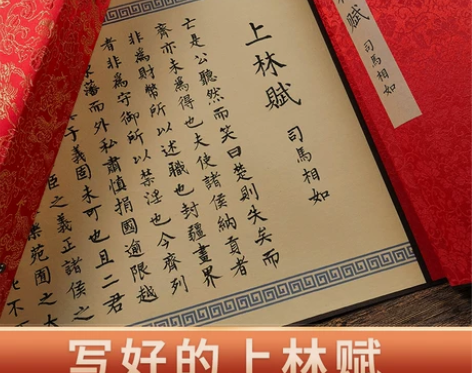 林賦
司馬相如
上林賦
司馬相如
亡是公聽然而笑曰楚則失矣而
齊亦未為得也夫使諸侯納貢者
非為財幣所以述職也封疆畫界
者非為守御所以禁淫也今齊列
藩而外私肅慎捐國逾限越
于義固未可也且二君
臣之義正諸侯之
苑囿之大
也不
写好的上林赋